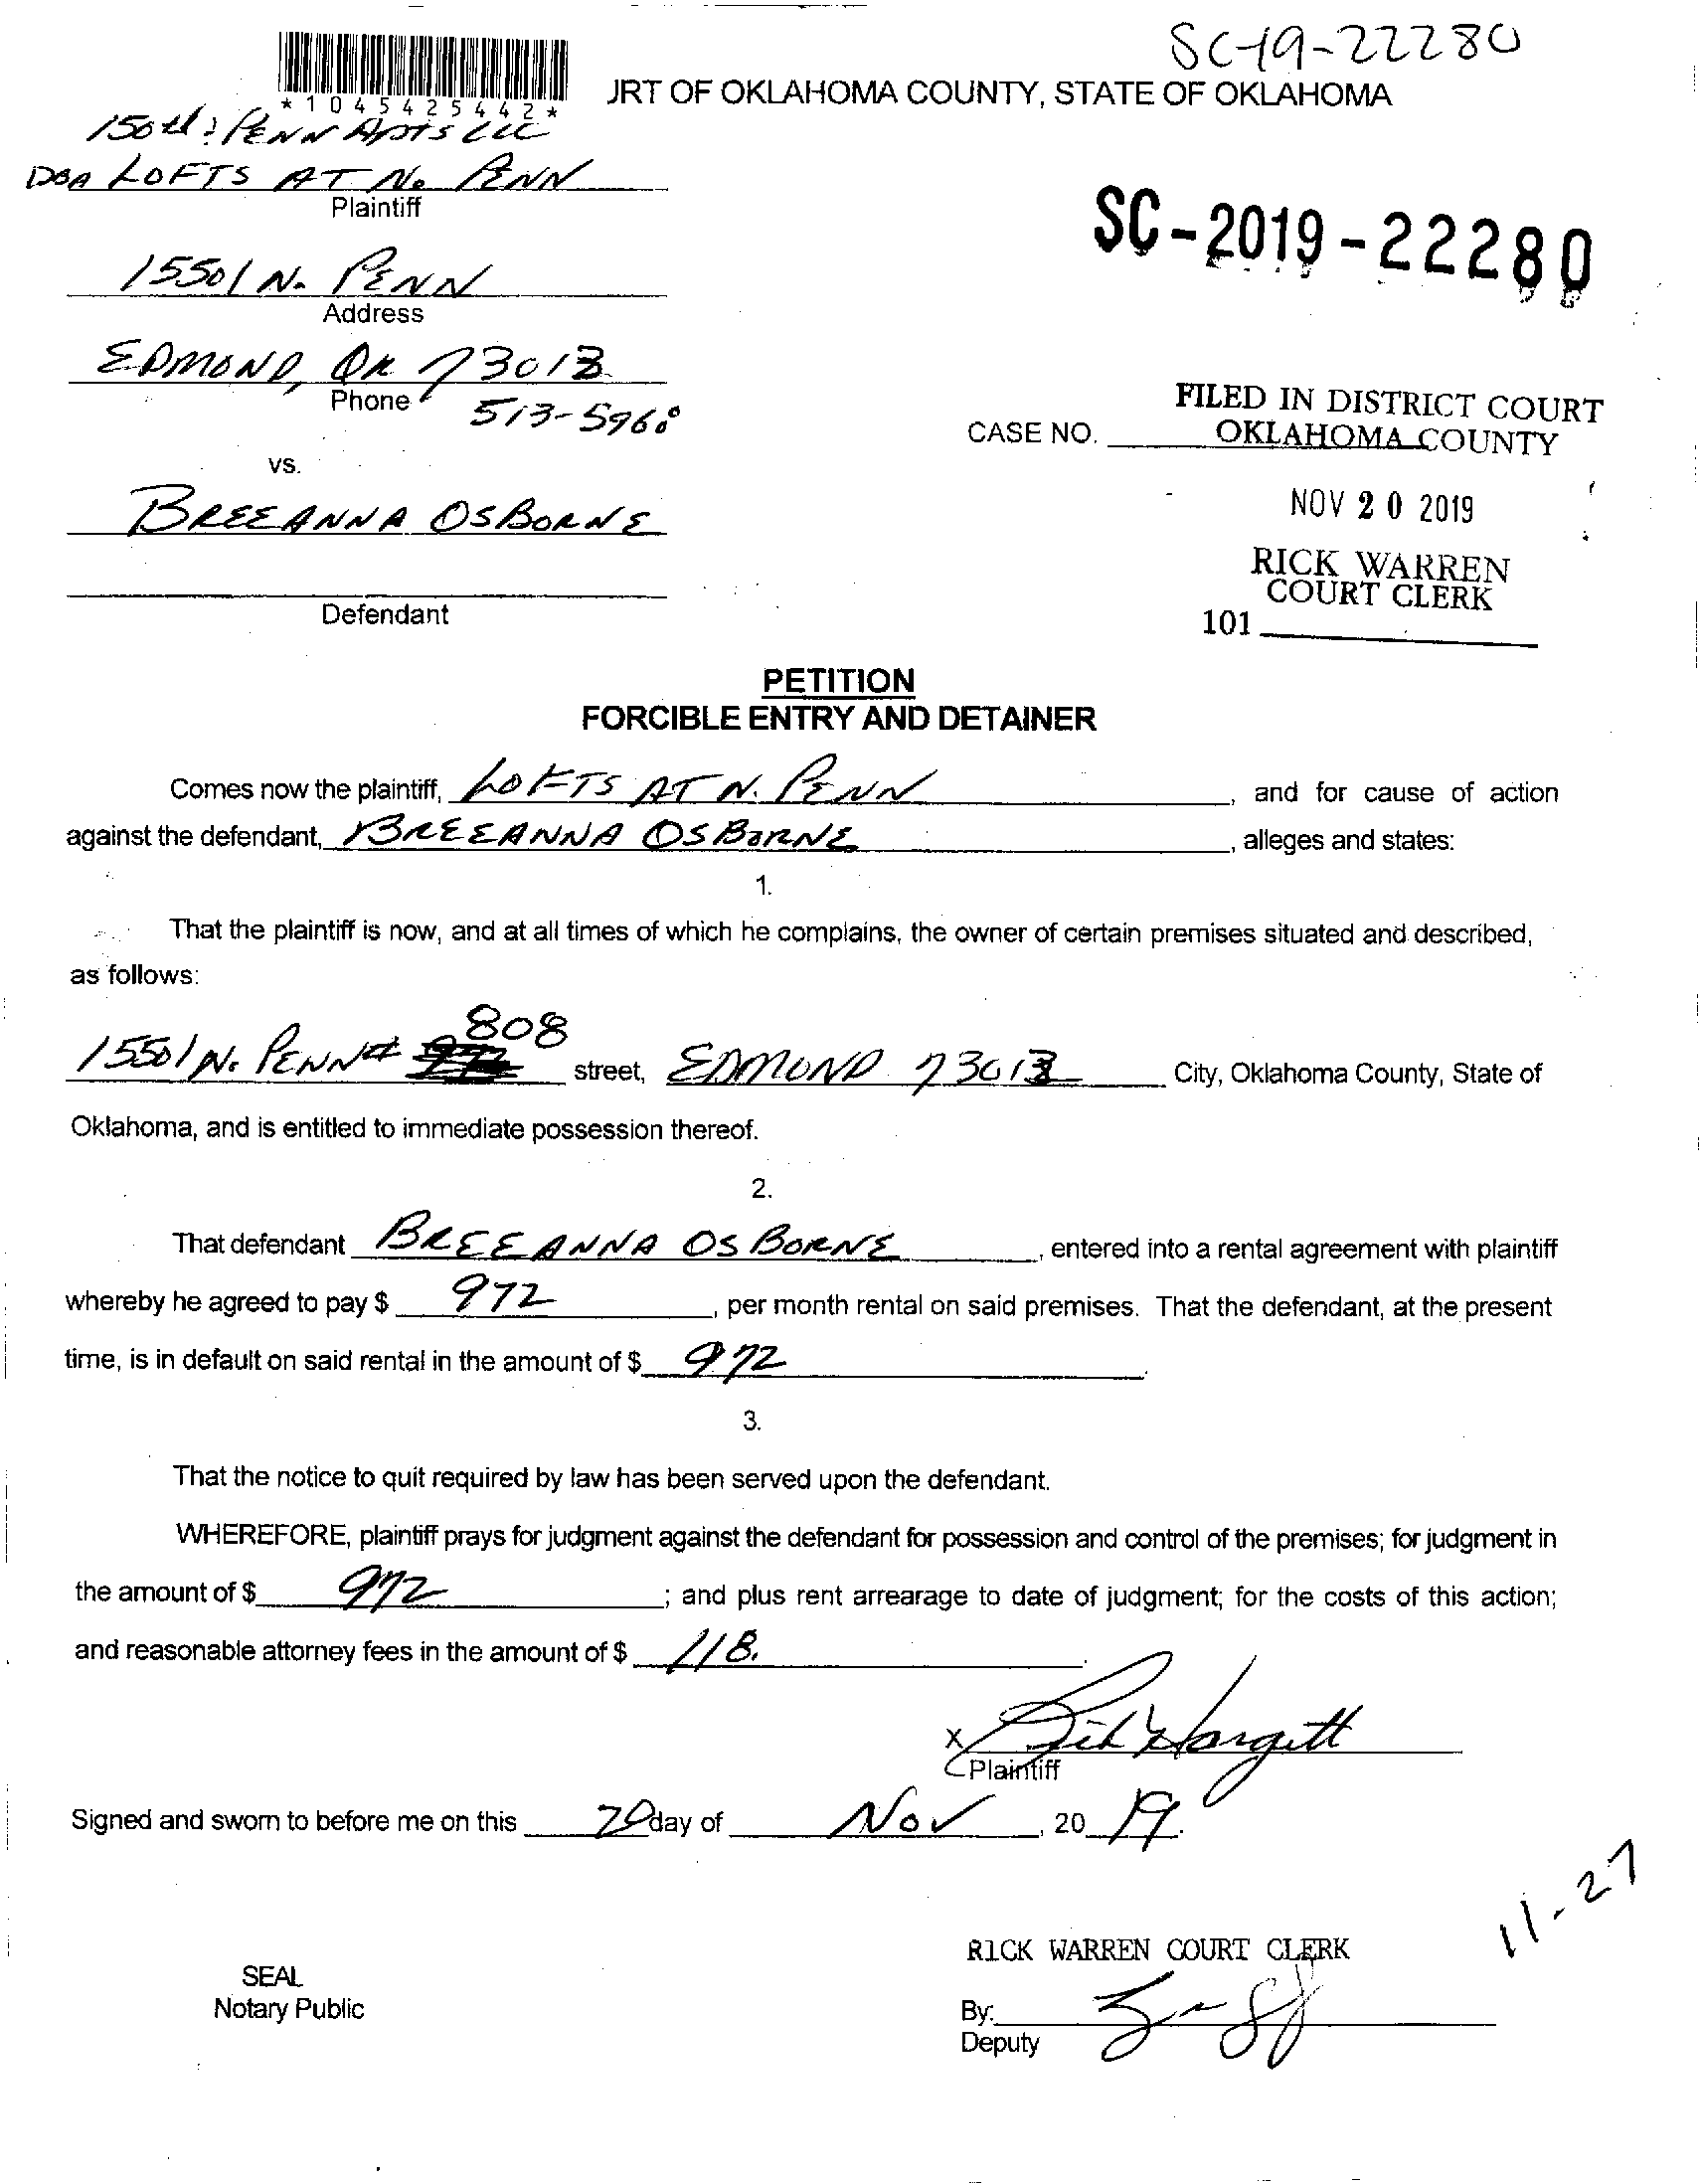 SC-19-22280
*1045425442*
JRT OF OKLAHOMA COUNTY, STATE OF OKLAHOMA
150th & PENN APTS LLC
DBA LOFTS AT No PENN
Plaintiff
SC-2019-22280
15501 N. PENN
Address
EDMOND, OK 73013
Phone 513-5960
FILED IN DISTRICT COURT
CASE NO. OKLAHOMA COUNTY
vs.
NOV 20 2019
BREEANNA OSBORNE
RICK WARREN
COURT CLERK
Defendant
101
PETITION
FORCIBLE ENTRY AND DETAINER
Comes now the plaintiff, LOFTS AT N. PENN, and for cause of action
against the defendant, BREEANNA OSBORNE, alleges and states:
1.
That the plaintiff is now, and at all times of which he complains, the owner of certain premises situated and described,
as follows:
15501 N. PENN # 808 street, EDMOND 73013 City, Oklahoma County, State of
Oklahoma, and is entitled to immediate possession thereof.
2.
That defendant BREEANNA OSBORNE, entered into a rental agreement with plaintiff
whereby he agreed to pay $ 972, per month rental on said premises. That the defendant, at the present
time, is in default on said rental in the amount of $ 972.
3.
That the notice to quit required by law has been served upon the defendant.
WHEREFORE, plaintiff prays for judgment against the defendant for possession and control of the premises; for judgment in
the amount of $ 972; and plus rent arrearage to date of judgment; for the costs of this action;
and reasonable attorney fees in the amount of $ 118.
X Hargett
Plaintiff
Signed and sworn to before me on this 20 day of Nov, 20 19.
11-27
RICK WARREN COURT CLERK
SEAL
Notary Public
By:
Deputy